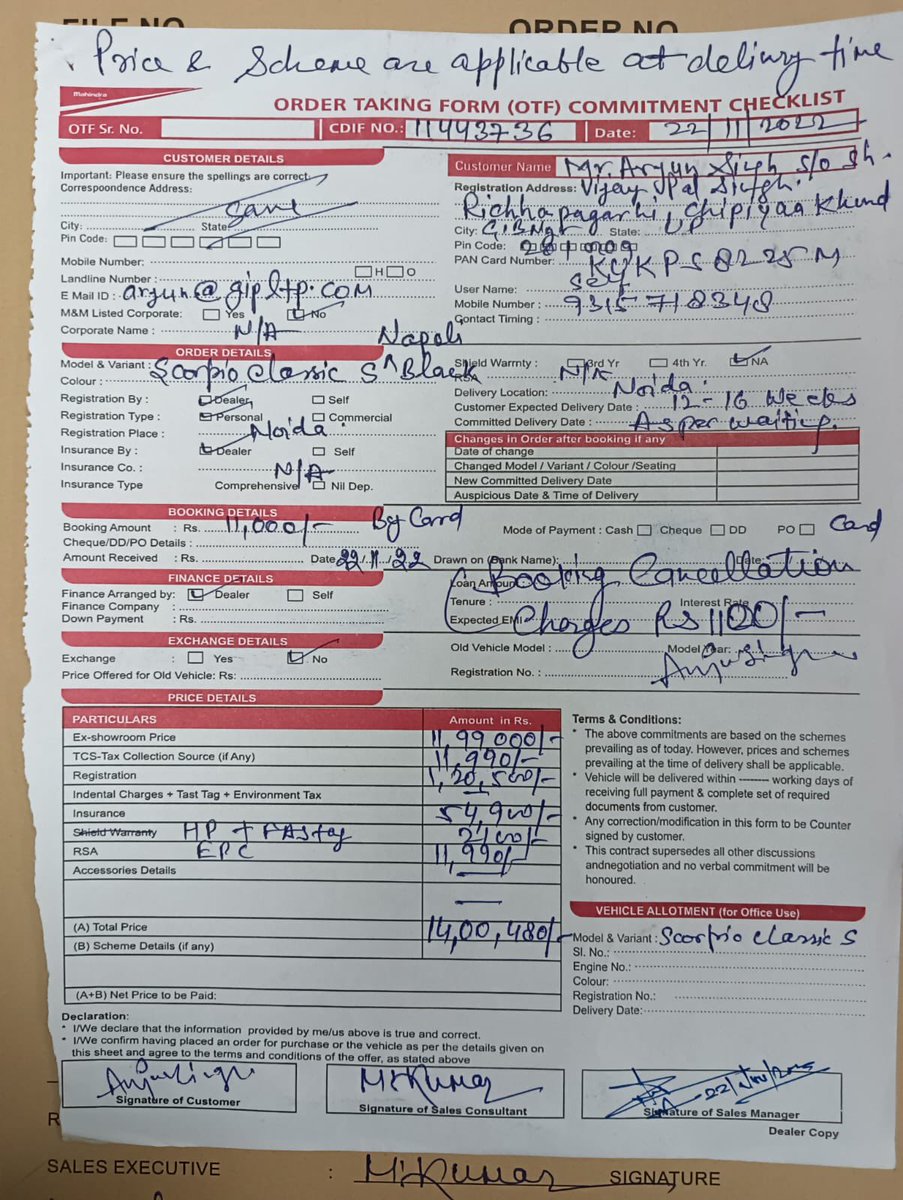 FILE NO
ORDER NO
Price & Scheme are applicable at delivry time
Mahindra
ORDER TAKING FORM (OTF) COMMITMENT CHECKLIST
OTF Sr. No.
CDIF NO.: 11443736
Date: 22/11/2022
CUSTOMER DETAILS
Important: Please ensure the spellings are correct.
Correspoondence Address:
Same
City: State
Pin Code:
Mobile Number:
Landline Number : H O
E Mail ID : arjun@gipltp.com
M&M Listed Corporate: Yes No
Corporate Name : N/A
Customer Name Mr. Arjun Sigh s/o sh.
Registration Address: Vijay Pal Singh
Richhapagarhi, Chipiyaa Khund
City: G.B Ngr State: UP
Pin Code:
PAN Card Number: KYKPS8225M
User Name: self
Mobile Number : 9315718348
Contact Timing :
ORDER DETAILS
Napoli
Model & Variant : Scorpio Classic S ^ Black
Colour :
Registration By : Dealer Self
Registration Type : Personal Commercial
Registration Place : Noida
Insurance By : Dealer Self
Insurance Co. : N/A
Insurance Type Comprehensive Nil Dep.
Shield Warrnty : 3rd Yr 4th Yr. NA
RSA N/A
Delivery Location: Noida.
Customer Expected Delivery Date : 12-16 Weeks
Committed Delivery Date : As per waiting.
Changes in Order after booking if any
Date of change
Changed Model / Variant / Colour /Seating
New Committed Delivery Date
Auspicious Date & Time of Delivery
BOOKING DETAILS
Booking Amount : Rs. 11,000/- By Card
Mode of Payment : Cash Cheque DD PO Card
Cheque/DD/PO Details :
Amount Received : Rs. Date 22/11/22 Drawn on (Bank Name): Date:
FINANCE DETAILS
Finance Arranged by: Dealer Self
Finance Company :
Down Payment : Rs.
Loan Amount :
Tenure : Interest Rate
Expected EMI
Booking Cancellation
Charges Rs 1100/-
EXCHANGE DETAILS
Exchange : Yes No
Price Offered for Old Vehicle: Rs:
Old Vehicle Model : Model Year:
Registration No. :
PRICE DETAILS
PARTICULARS Amount in Rs.
Ex-showroom Price 11,99000/-
TCS-Tax Collection Source (if Any) 11,990/-
Registration 1,20,500/-
Indental Charges + Tast Tag + Environment Tax
Insurance 54,900/-
Shield Warranty HP + FAStag 2100/-
RSA EPC 11,990/-
Accessories Details
(A) Total Price 14,00,480/-
(B) Scheme Details (if any)
(A+B) Net Price to be Paid:
Terms & Conditions:
* The above commitments are based on the schemes
prevailing as of today. However, prices and schemes
prevailing at the time of delivery shall be applicable.
* Vehicle will be delivered within -------- working days of
receiving full payment & complete set of required
documents from customer.
* Any correction/modification in this form to be Counter
signed by customer.
* This contract supersedes all other discussions
andnegotiation and no verbal commitment will be
honoured.
VEHICLE ALLOTMENT (for Office Use)
Model & Variant : Scorpio Classic S
Sl. No.:
Engine No.:
Colour:
Registration No.:
Delivery Date:
Declaration:
* I/We declare that the information provided by me/us above is true and correct.
* I/We confirm having placed an order for purchase or the vehicle as per the details given on
this sheet and agree to the terms and conditions of the offer, as stated above
Signature of Customer
M.Kumar
Signature of Sales Consultant
Signature of Sales Manager
Dealer Copy
SALES EXECUTIVE : M.Kumar SIGNATURE